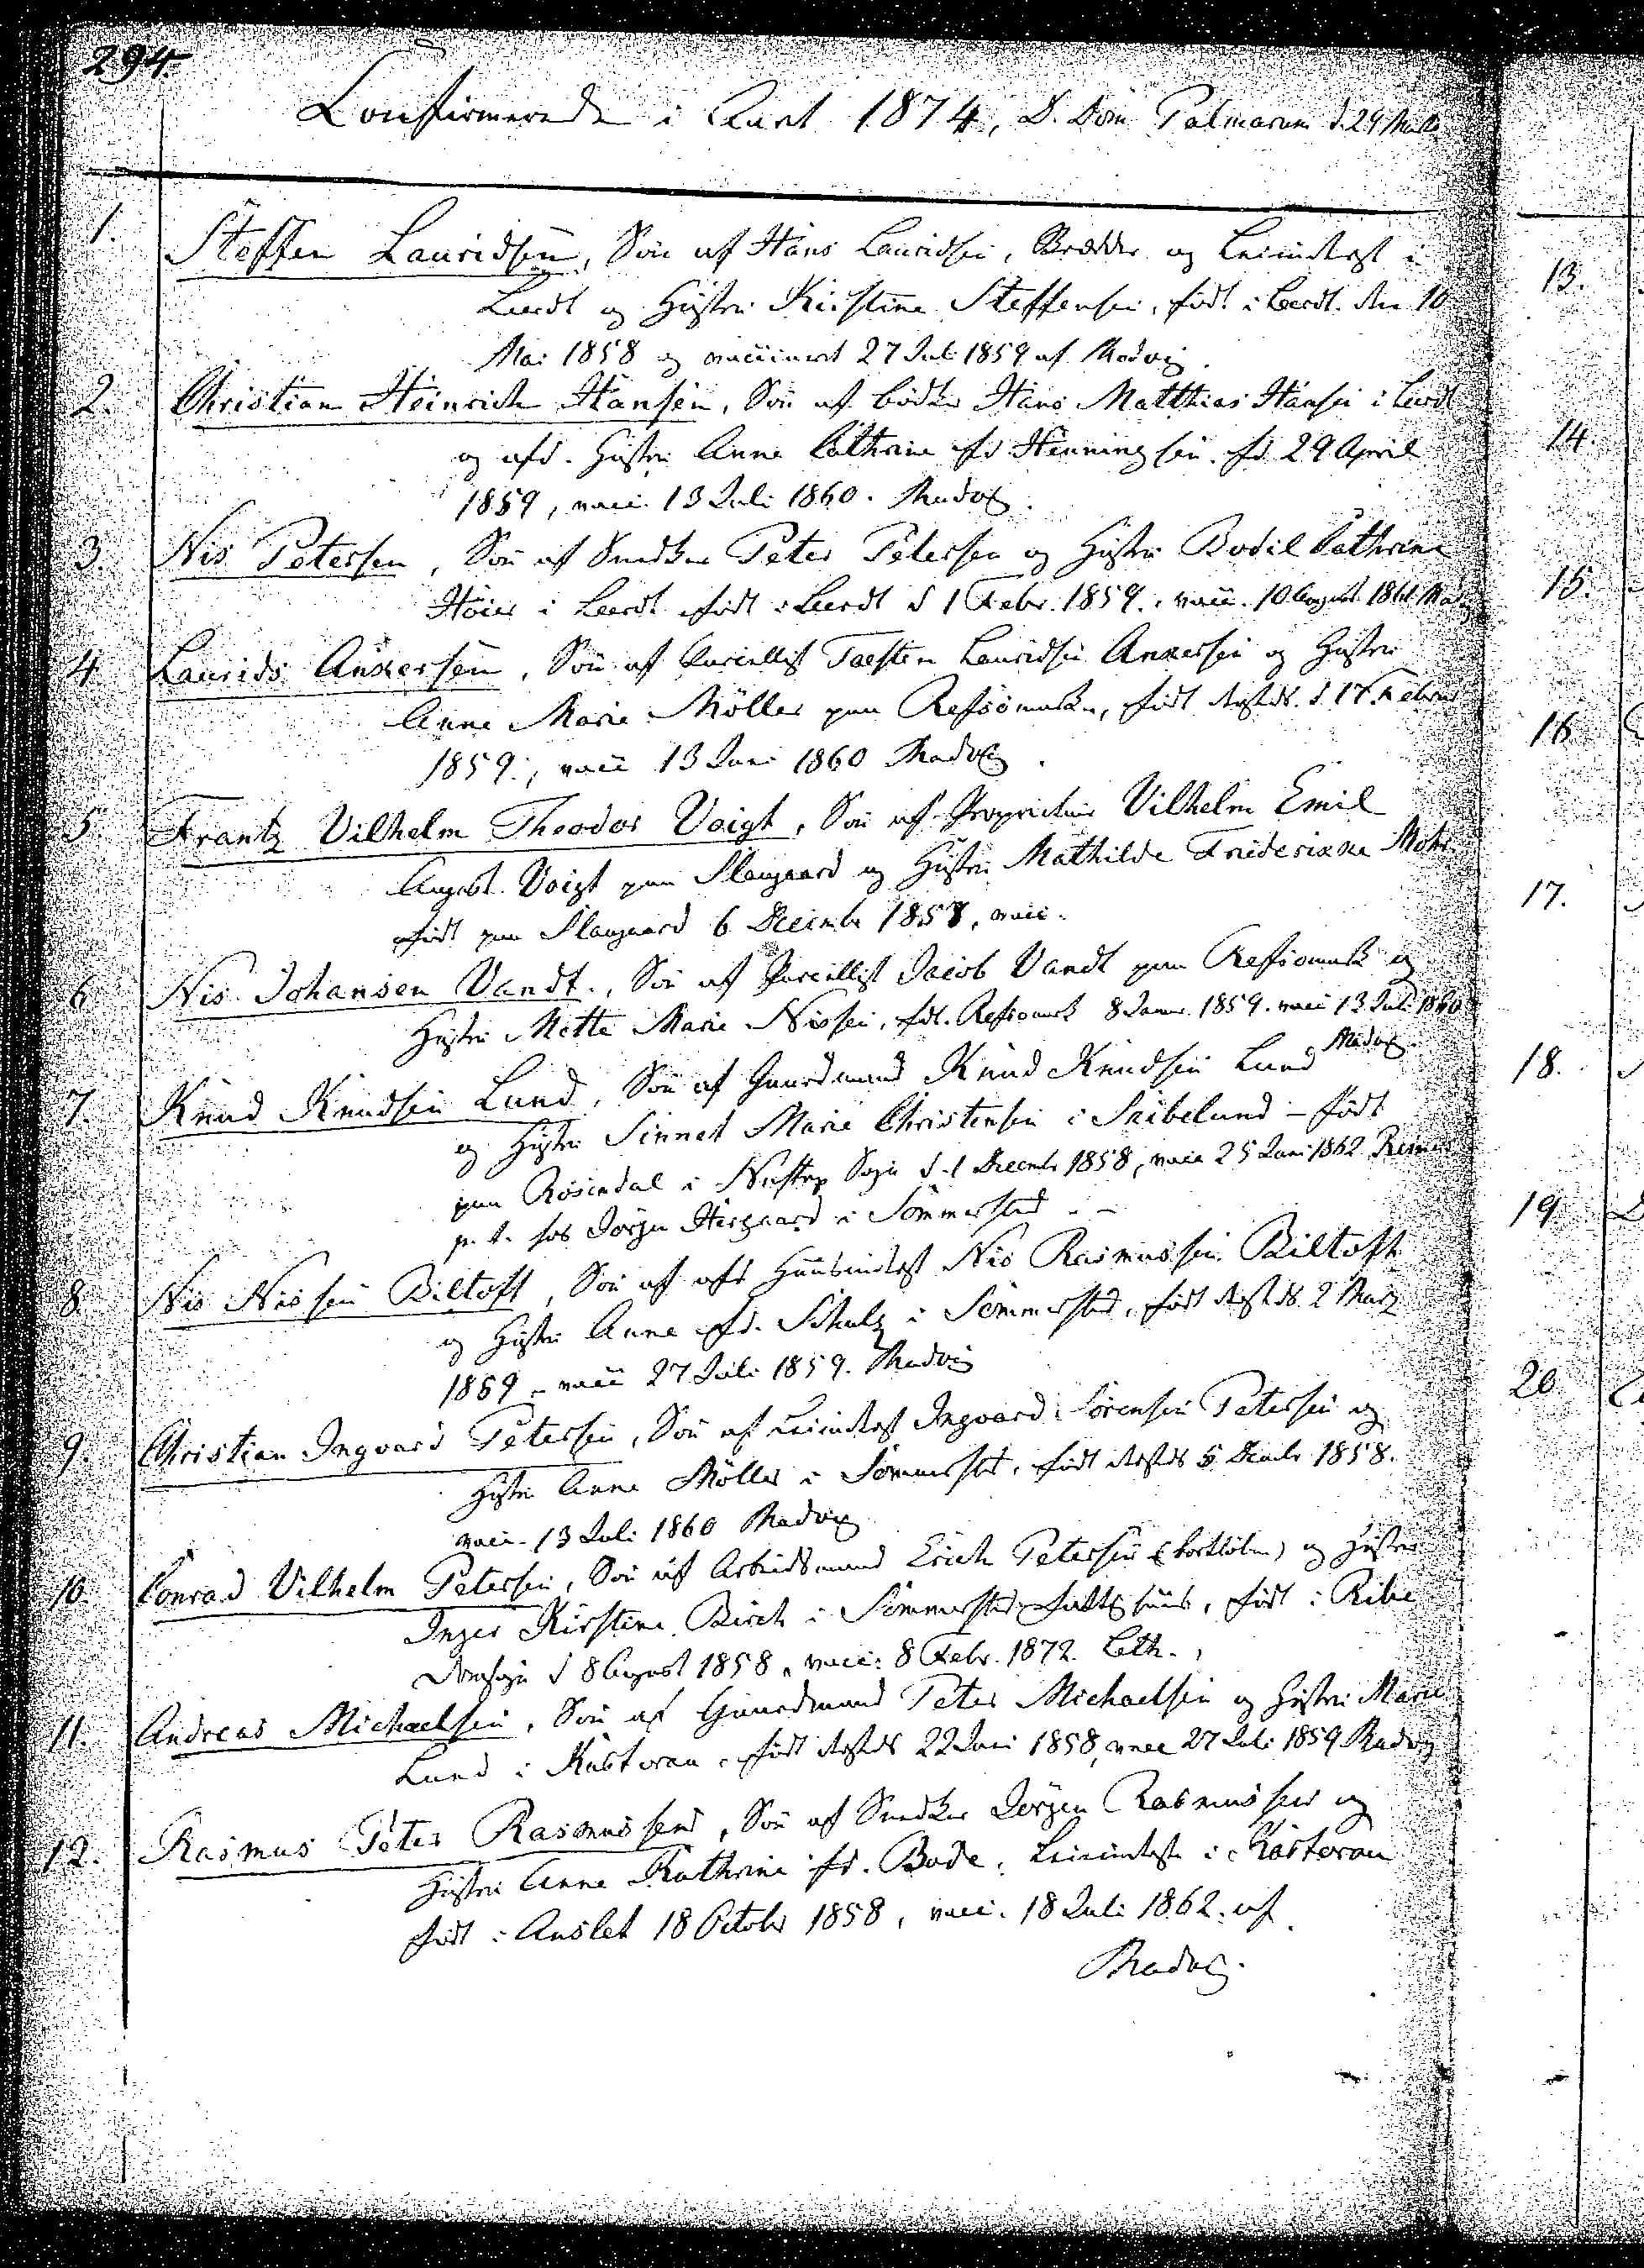 294.
Confirmerede i Aaret 1874, D. Dom Palmarum d. 29 Marts
1. Steffen Lauridsen, Søn af Hans Lauridsen, og Leiinderst i
Leerdt og Hustru Kirstine Steffensen, født i Leerdt den 10
Mai 1858 og vaccineret 27 Juli 1859 af Madvig.
2. Christian Heinrich Hansen, Søn af Bødker Hans Matthias Hansen i Leerdt
og afd. Hustru Anne Cathrine fd. Henningsen. fd. 29 April
1859, vacc. 13 Juli 1860. Madvig.
3. Nis Petersen, Søn af Snedker Peter Petersen og Hustru Bodil Cathrine
Höier i Leerdt født i Leerdt d 1 Febr. 1859. vacc. 10 August 1861 Madvig
4. Laurids Ankersen, Søn af Parcellist Torsten Lauridsen Ankersen og Hustru
Anne Marie Möller paa Refsömark, født sammesteds d 17 Februar
1859., vacc 13 Juni 1860 Madvig.
5. Frantz Vilhelm Theodor Voigt, Søn af Proprietair Vilhelm Emil
August Voigt paa Slaugaard og Hustru Mathilde Friederikke Mohr
født paa Slaugaard 6 Decembr 1858, vacc.
6. Nis Johansen Vandt., Søn af Parcellist Jacob Vandt paa Refsömark og
Hustru Mette Marie Nissen, fdt. Refsömark 8 Januar 1859. vacc 13 Juli 1860
Madvig.
7. Knud Knudsen Lund, Søn af Gaardmand Knud Knudsen Lund
og Hustru Sinnet Marie Christensen i Skibelund – født
paa Rosendal i Nustrup Sogn d. 1 Decembr 1858, vacc 25 Juni 1862
p. t. hos Jörgen Hergaard i Sommersted. –
8. Nis Nissen Biltoft, Søn af afd Huusinderst Nis Rasmussen Biltoft
og Hustru Anne fd. Schulz i Sommersted, født 2 Marz
1859 – vacc 27 Juli 1859. Madvig
9. Christian Ingvard Petersen, Søn af Leiinderst Ingvard Sörensen Petersen og
Hustru Anne Möller i Sommersted, født 5 Decembr 1858.
vacc. 13 Juli 1860 Madvig
10. Conrad Vilhelm Petersen, Søn af Arbeidsmand Erich Petersen og Hustru
Inger Kirstine Birch i Sommersted Fattighuus, født i Ribe
Domsogn d 8 August 1858, vacc: 8 Febr. 1872.
11. Andreas Michaelsen, Søn af Gaardmand Peter Michaelsen og Hustru Marie
Lund i Kastvraa, født 22 Juni 1858, vacc 27 Juli 1859 Madvig
12. Rasmus Peter Rasmussen, Søn af Snedker Jörgen Rasmussen og
Hustru Anne Kathrine fd. Bode, Leiinderst i Kastvraa
født i Anslet 18 October 1858, vacc. 18 Juli 1862. af
Madvig.
13.
14.
15.
16.
17.
18.
19.
20.